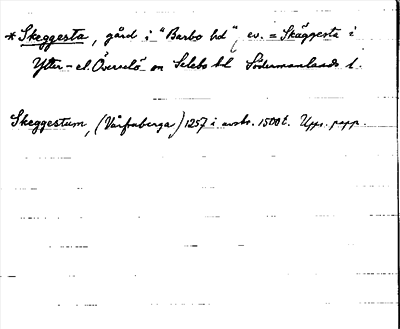 * Skeggesta, gård i "Barbo hd", ev. = Skäggesta i
Ytter- el. Överselö sn Selebo hd Södermanlands l.
Skeggestum, (Vårfruberga) 1257 i avskr. 1500 t. Upps. papp.